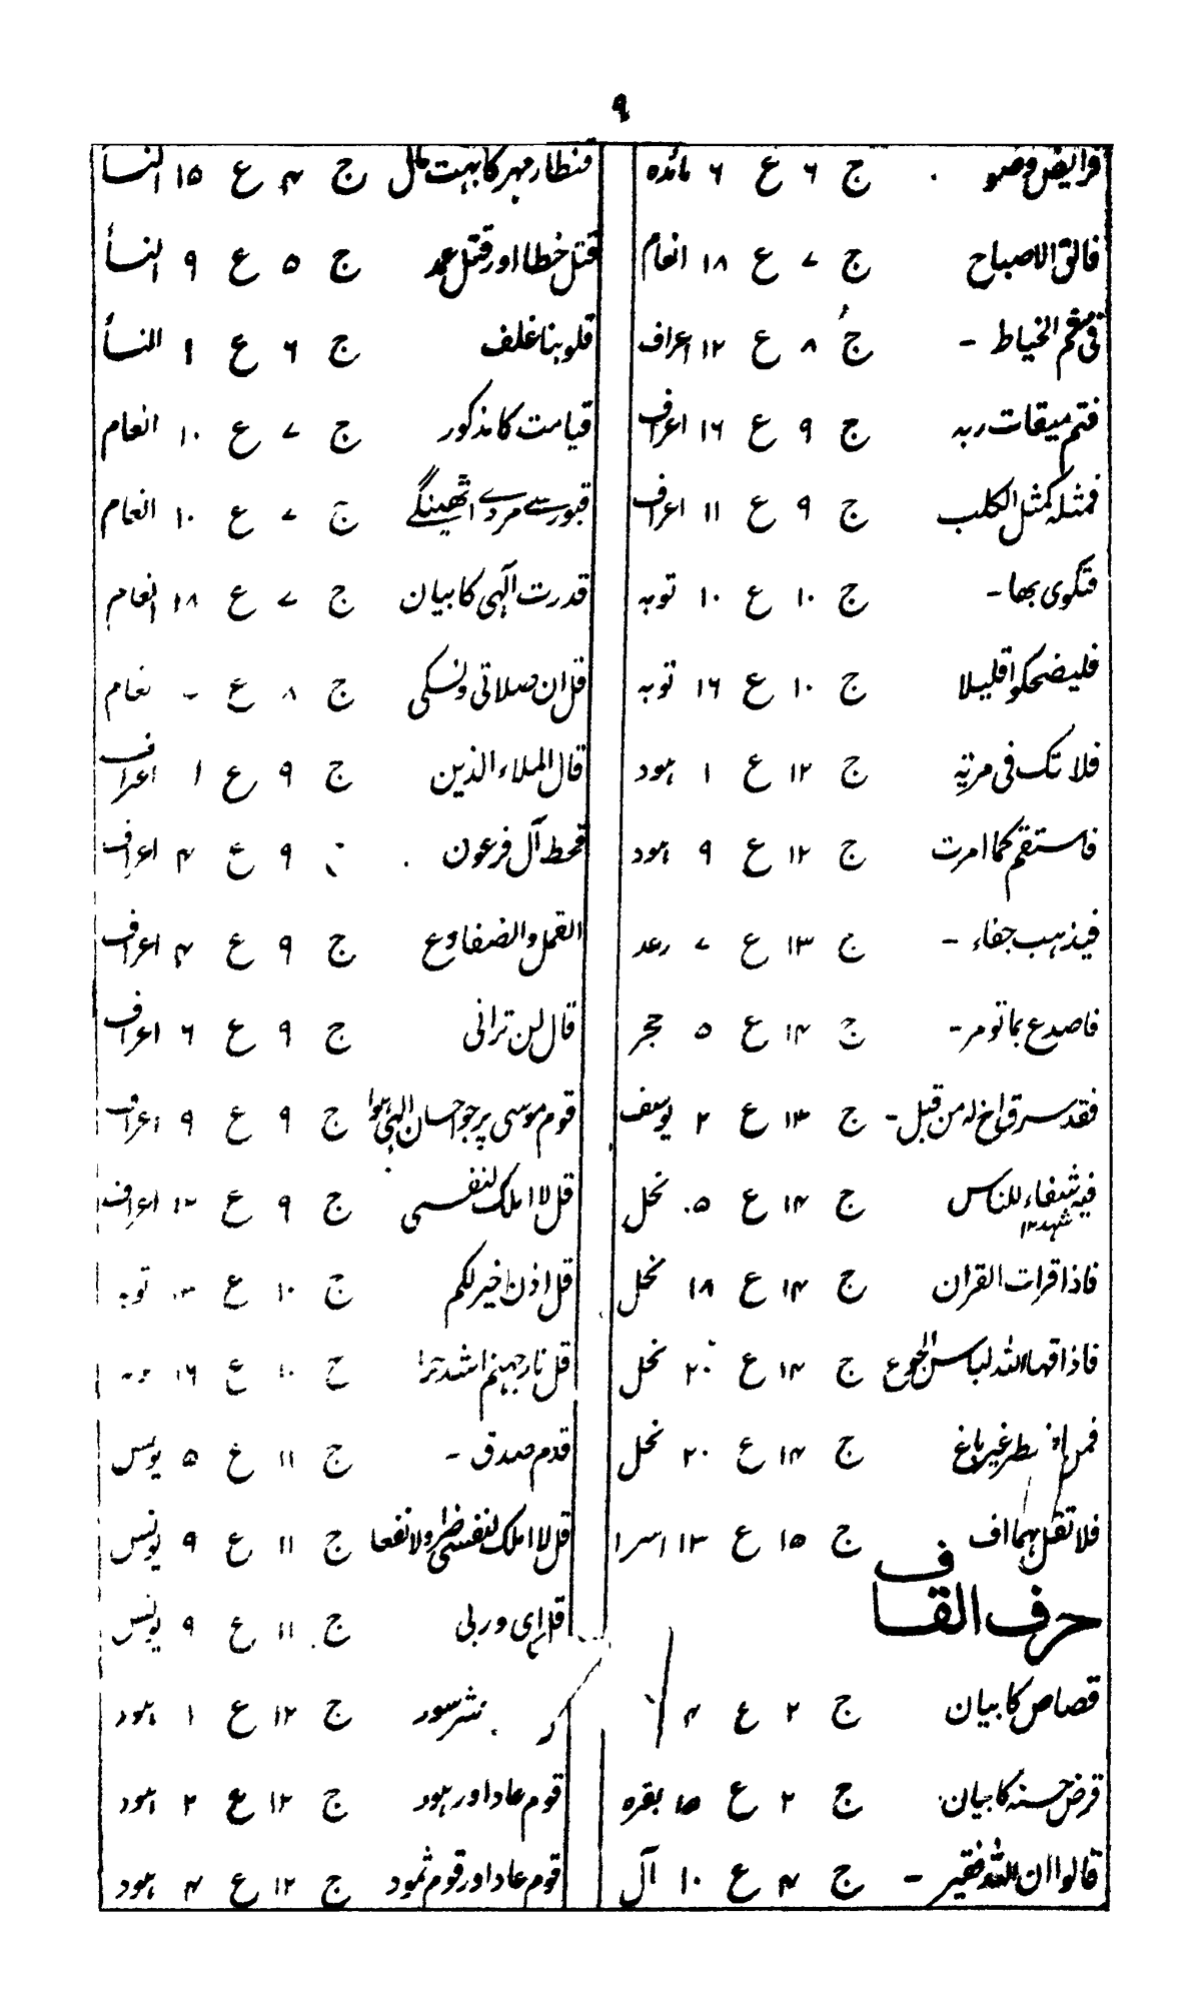 ۹
فرایض وضو ج ۶ ع ۶ مائدہ
فالق الاصباح ج ۷ ع ۱۸ انعام
فی سم الخیاط - ج ۸ ع ۱۲ اعراف
فتم میقات ربہ ج ۹ ع ۱۶ اعراف
فمثلہ کمثل الکلب ج ۹ ع ۱۱ اعراف
فتکوی بھا - ج ۱۰ ع ۱۰ توبہ
فلیضحکوا قلیلا ج ۱۰ ع ۱۶ توبہ
فلا تک فی مریۃ ج ۱۲ ع ۱ ہود
فاستقم کما امرت ج ۱۲ ع ۹ ہود
فیذہب جفاء - ج ۱۳ ع ۷ رعد
فاصدع بما تومر - ج ۱۴ ع ۵ حجر
فقد سرق اخ لہ من قبل - ج ۱۳ ع ۲ یوسف
فیہ شفاء للناس ج ۱۴ ع ۵ نحل
شہد ۱۲
فاذا قرات القران ج ۱۴ ع ۱۸ نحل
فاذاقہا اللہ لباس الجوع ج ۱۴ ع ۲۰ نحل
فمن اضطر غیر باغ ج ۱۴ ع ۲۰ نحل
فلا تقل لہما اف ج ۱۵ ع ۱۳ اسرا
حرف القاف
قصاص کا بیان ج ۲ ع ۴
قرض حسنہ کا بیان ج ۲ ع ۱۵ بقرہ
قالوا ان اللہ فقیر - ج ۴ ع ۱۰ آل
قنطار مہر کا بہت مال ج ۴ ع ۱۵ النسا
قتل خطا اور قتل عمد ج ۵ ع ۹ النسأ
قلوبنا غلف ج ۶ ع ۱ النسأ
قیامت کا مذکور ج ۷ ع ۱۰ انعام
قبور سے مردے اٹھینگے ج ۷ ع ۱۰ انعام
قدرت الٰہی کا بیان ج ۷ ع ۱۸ انعام
قل ان صلاتی ونسکی ج ۸ ع نعام
قال الملاء الذین ج ۹ ع ۱ اعراف
قحط آل فرعون ۹ ع ۴ اعراف
القمل والضفادع ج ۹ ع ۴ اعراف
قال لن ترانی ج ۹ ع ۶ اعراف
قوم موسی پر جو احسان الٰہی ہوا ج ۹ ع ۹ اعراف
قل لا املک لنفسی ج ۹ ع اعراف
قل اذن خیر لکم ج ۱۰ ع توبہ
قل نار جہنم اشد حرا ج ۱۰ ع ۱۶
قدم صدق - ج ۱۱ ع ۵ یونس
قل لا املک لنفسی ضرا ولا نفعا ج ۱۱ ع ۹ یونس
قل ای وربی ج ۱۱ ع ۹ یونس
سور ج ۱۲ ع ۱ ہود
قوم عاد اور ہود ج ۱۲ ع ۲ ہود
قوم عاد اور قوم ثمود ج ۱۲ ع ۴ ہود